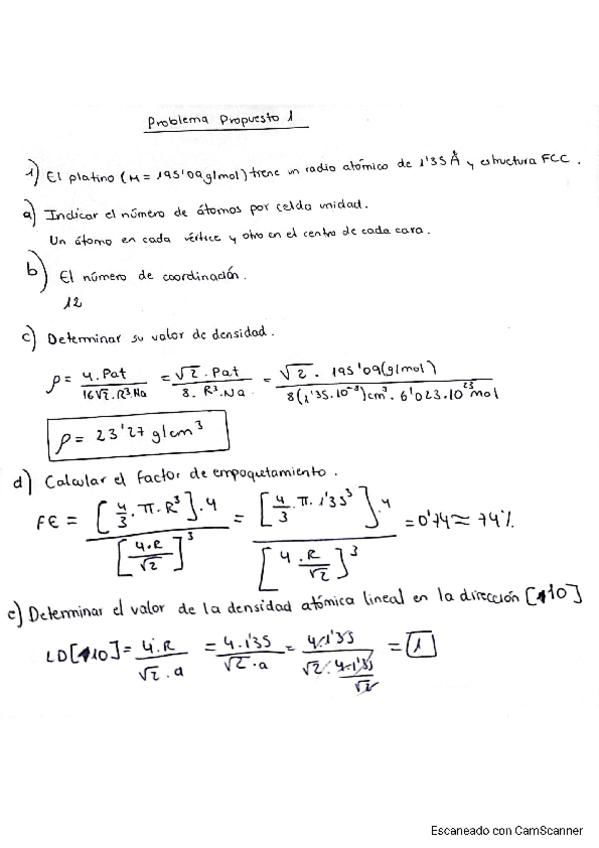 Problema Propuesto 1
1) El platino (M = 195'09g/mol) tiene un radio atómico de 1'35 Å y estructura FCC.
a) Indicar el número de átomos por celda unidad.
Un átomo en cada vértice y otro en el centro de cada cara.
b) El número de coordinación.
12
c) Determinar su valor de densidad.
ρ = 4.Pat / 16√2.R³.Na = √2.Pat / 8.R³.Na = √2.195'09(g/mol) / 8(1'35.10⁻⁸)cm³.6'023.10²³mol
ρ = 23'27 g/cm³
d) Calcular el factor de empaquetamiento.
FE = [4/3.π.R³].4 / [4.R/√2]³ = [4/3.π.1'35³].4 / [4.R/√2]³ = 0'74 ≈ 74%
e) Determinar el valor de la densidad atómica lineal en la dirección [110]
LD[110] = 4.R / √2.a = 4.1'35 / √2.a = 4.1'35 / √2.4.1'35/√2 = 1
Escaneado con CamScanner